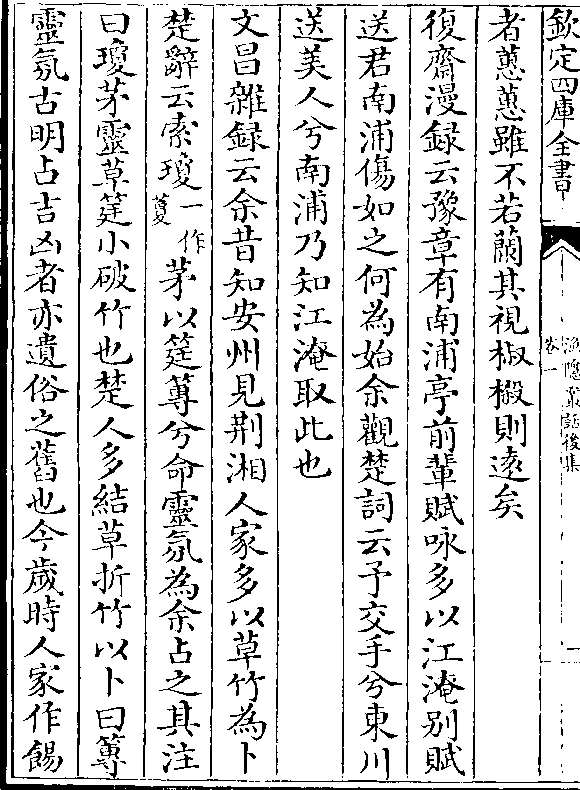 欽定四庫全書
漁隱叢話後集
卷一
者蕙蕙雖不若蘭其視椒樧則逺矣
復齋漫録云豫章有南浦亭前輩賦咏多以江淹别賦
送君南浦傷如之何為始余觀楚詞云予交手兮東川
送美人兮南浦乃知江淹取此也
文昌雜録云余昔知安州見荆湘人家多以草竹為卜
楚辭云索瓊一作藑茅以筳篿兮命靈氛為余占之其注
曰瓊茅靈草筳小破竹也楚人多結草折竹以卜曰篿
靈氛古明占吉凶者亦遺俗之舊也今歲時人家作餳